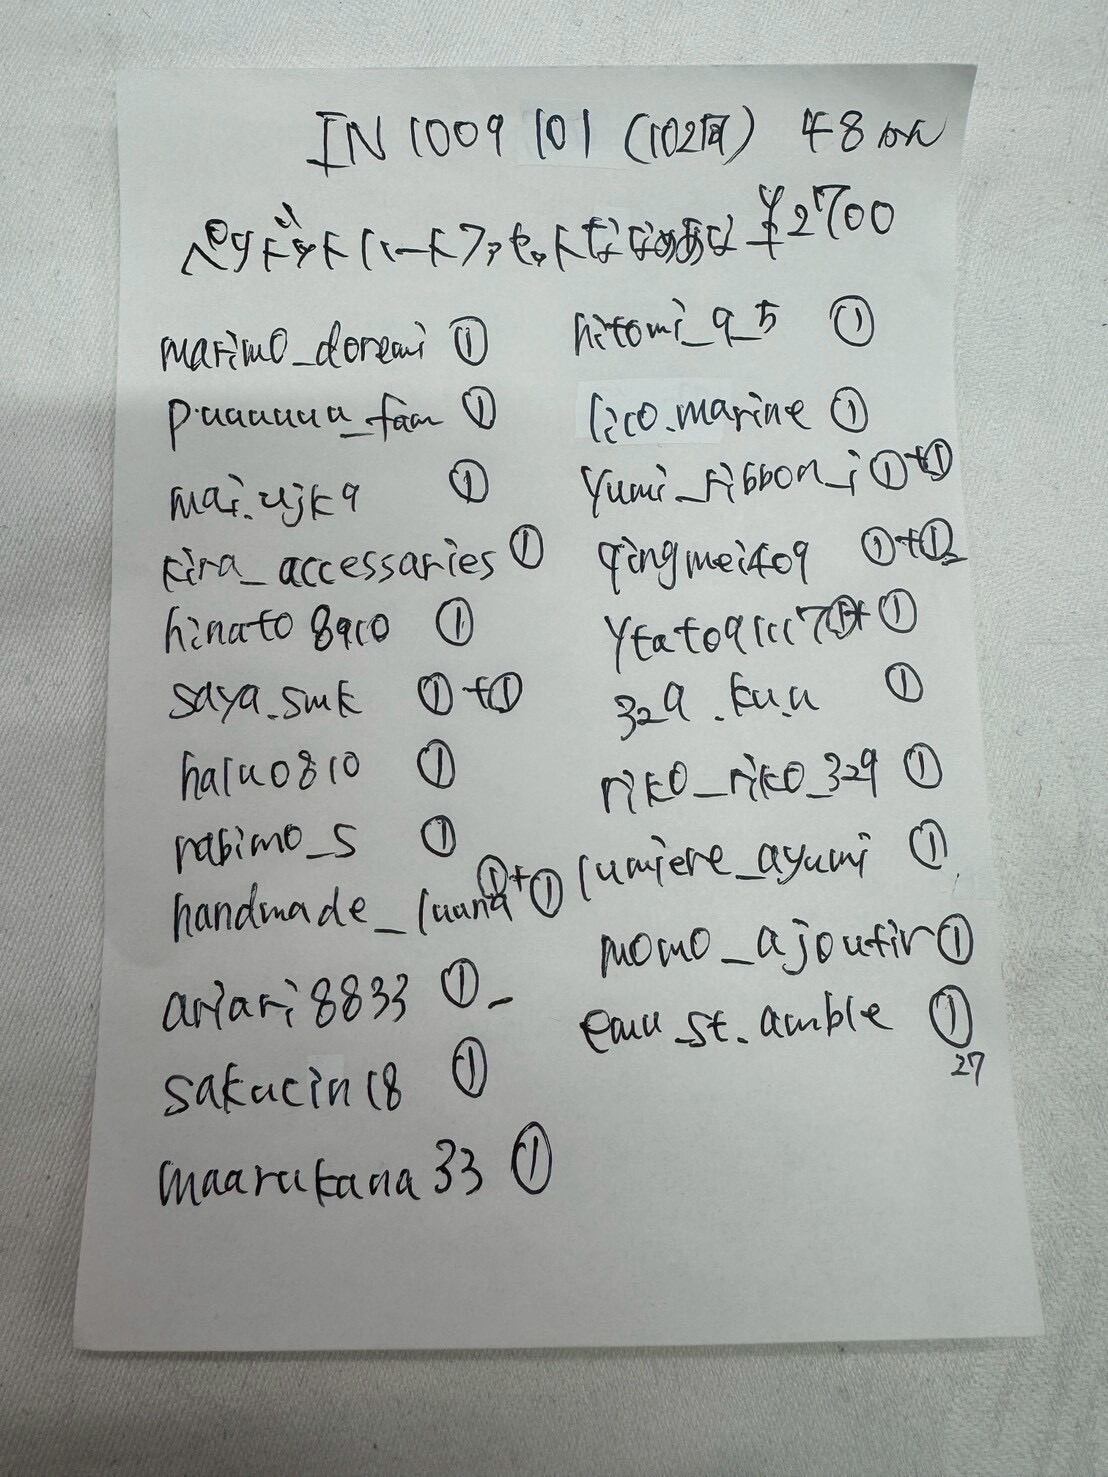 IN 1009 101 (102同) 48mm
ペリドットハートファセットななめあな ¥2700
marimo_doremi ①
p.uuuuuu_fam ①
mai.ujk9 ①
kira_accessaries ①
hinato8910 ①
saya.smk ①+①
haluo810 ①
rabimo_s ①
handmade_luuna ①+①
ariari8833 ①-
sakucin18 ①
maarukana33 ①
hitomi_9_5 ①
lico.marine ①
yumi_ribbon_i ①+①
qingmei409 ①+①2
ytato91117 ①+①
329.ku.u ①
riko_riko_329 ①
lumiere_ayumi ①
momo_ajoutir ①
emu_st.amble ①
27